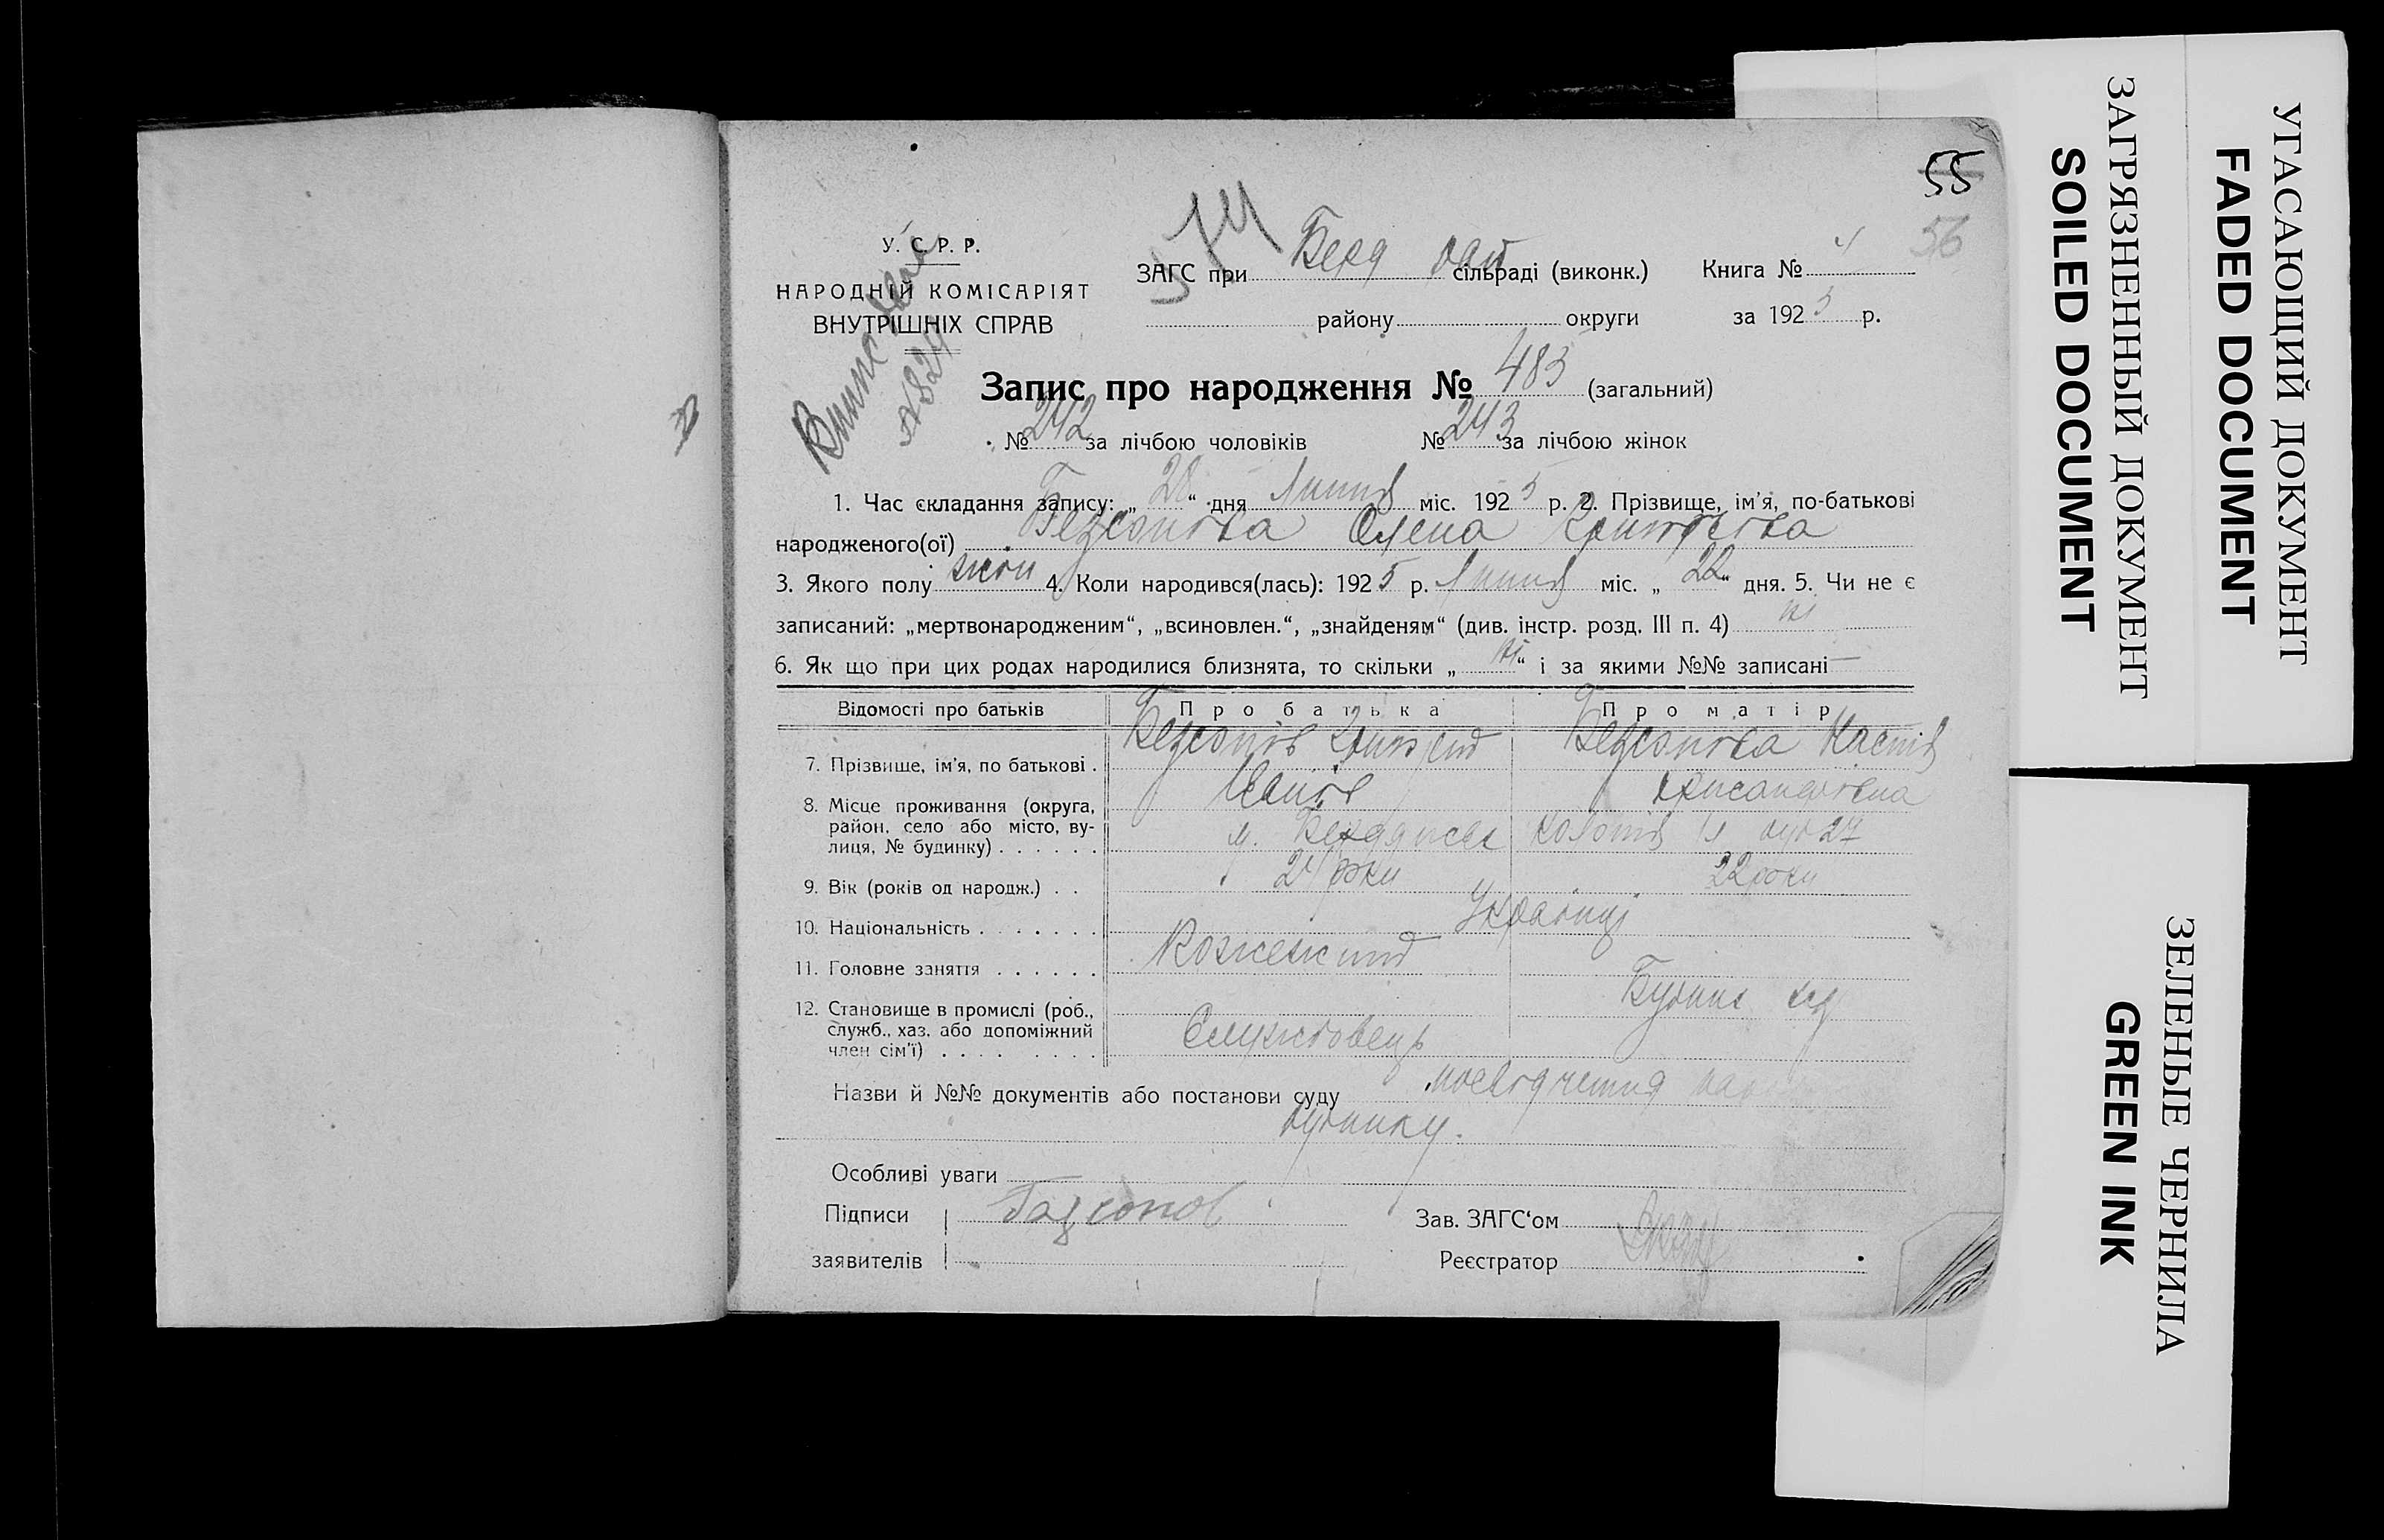 55
56
У. С. Р. Р.
НАРОДНІЙ КОМІСАРІЯТ
ВНУТРІШНІХ СПРАВ
ЗАГС при Берд сільраді (виконк.) Книга №
району округи за 1925 р.
Запис про народження № 483 (загальний)
№ 242 за лічбою чоловіків № 243 за лічбою жінок
1. Час складання запису: „28“ дня Липня міс. 1925 р. 2. Прізвище, ім'я, по-батькові
народженого(ої) Безсонова Олена
3. Якого полу жін 4. Коли народився(лась): 1925 р. Липня міс. „22“ дня. 5. Чи не є
записаний: „мертвонародженим“, „всиновлен.“, „знайденям“ (див. інстр. розд. III п. 4) ні
6. Як що при цих родах народилися близнята, то скільки „ні“ і за якими №№ записані —
Відомості про батьків Про батька Про матір
7. Прізвище, ім'я, по батькові . Безсонов Безсонова Настя
8. Місце проживання (округа,
район, село або місто, ву-
лиця, № будинку) . . . . . . м. 27
9. Вік (років од народж.) . . 24 роки 22 роки
10. Національність . . . . . . . Українці
11. Головне заняття . . . . . .
12. Становище в промислі (роб.,
служб., хаз. або допоміжний
член сім'ї) . . . . . . . . Службовець
Назви й №№ документів або постанови суду посвідчення
будинку.
Особливі уваги
Підписи Зав. ЗАГС'ом
заявителів Реєстратор
УГАСАЮЩИЙ ДОКУМЕНТ
FADED DOCUMENT
ЗАГРЯЗНЕННЫЙ ДОКУМЕНТ
SOILED DOCUMENT
ЗЕЛЕНЫЕ ЧЕРНИЛА
GREEN INK